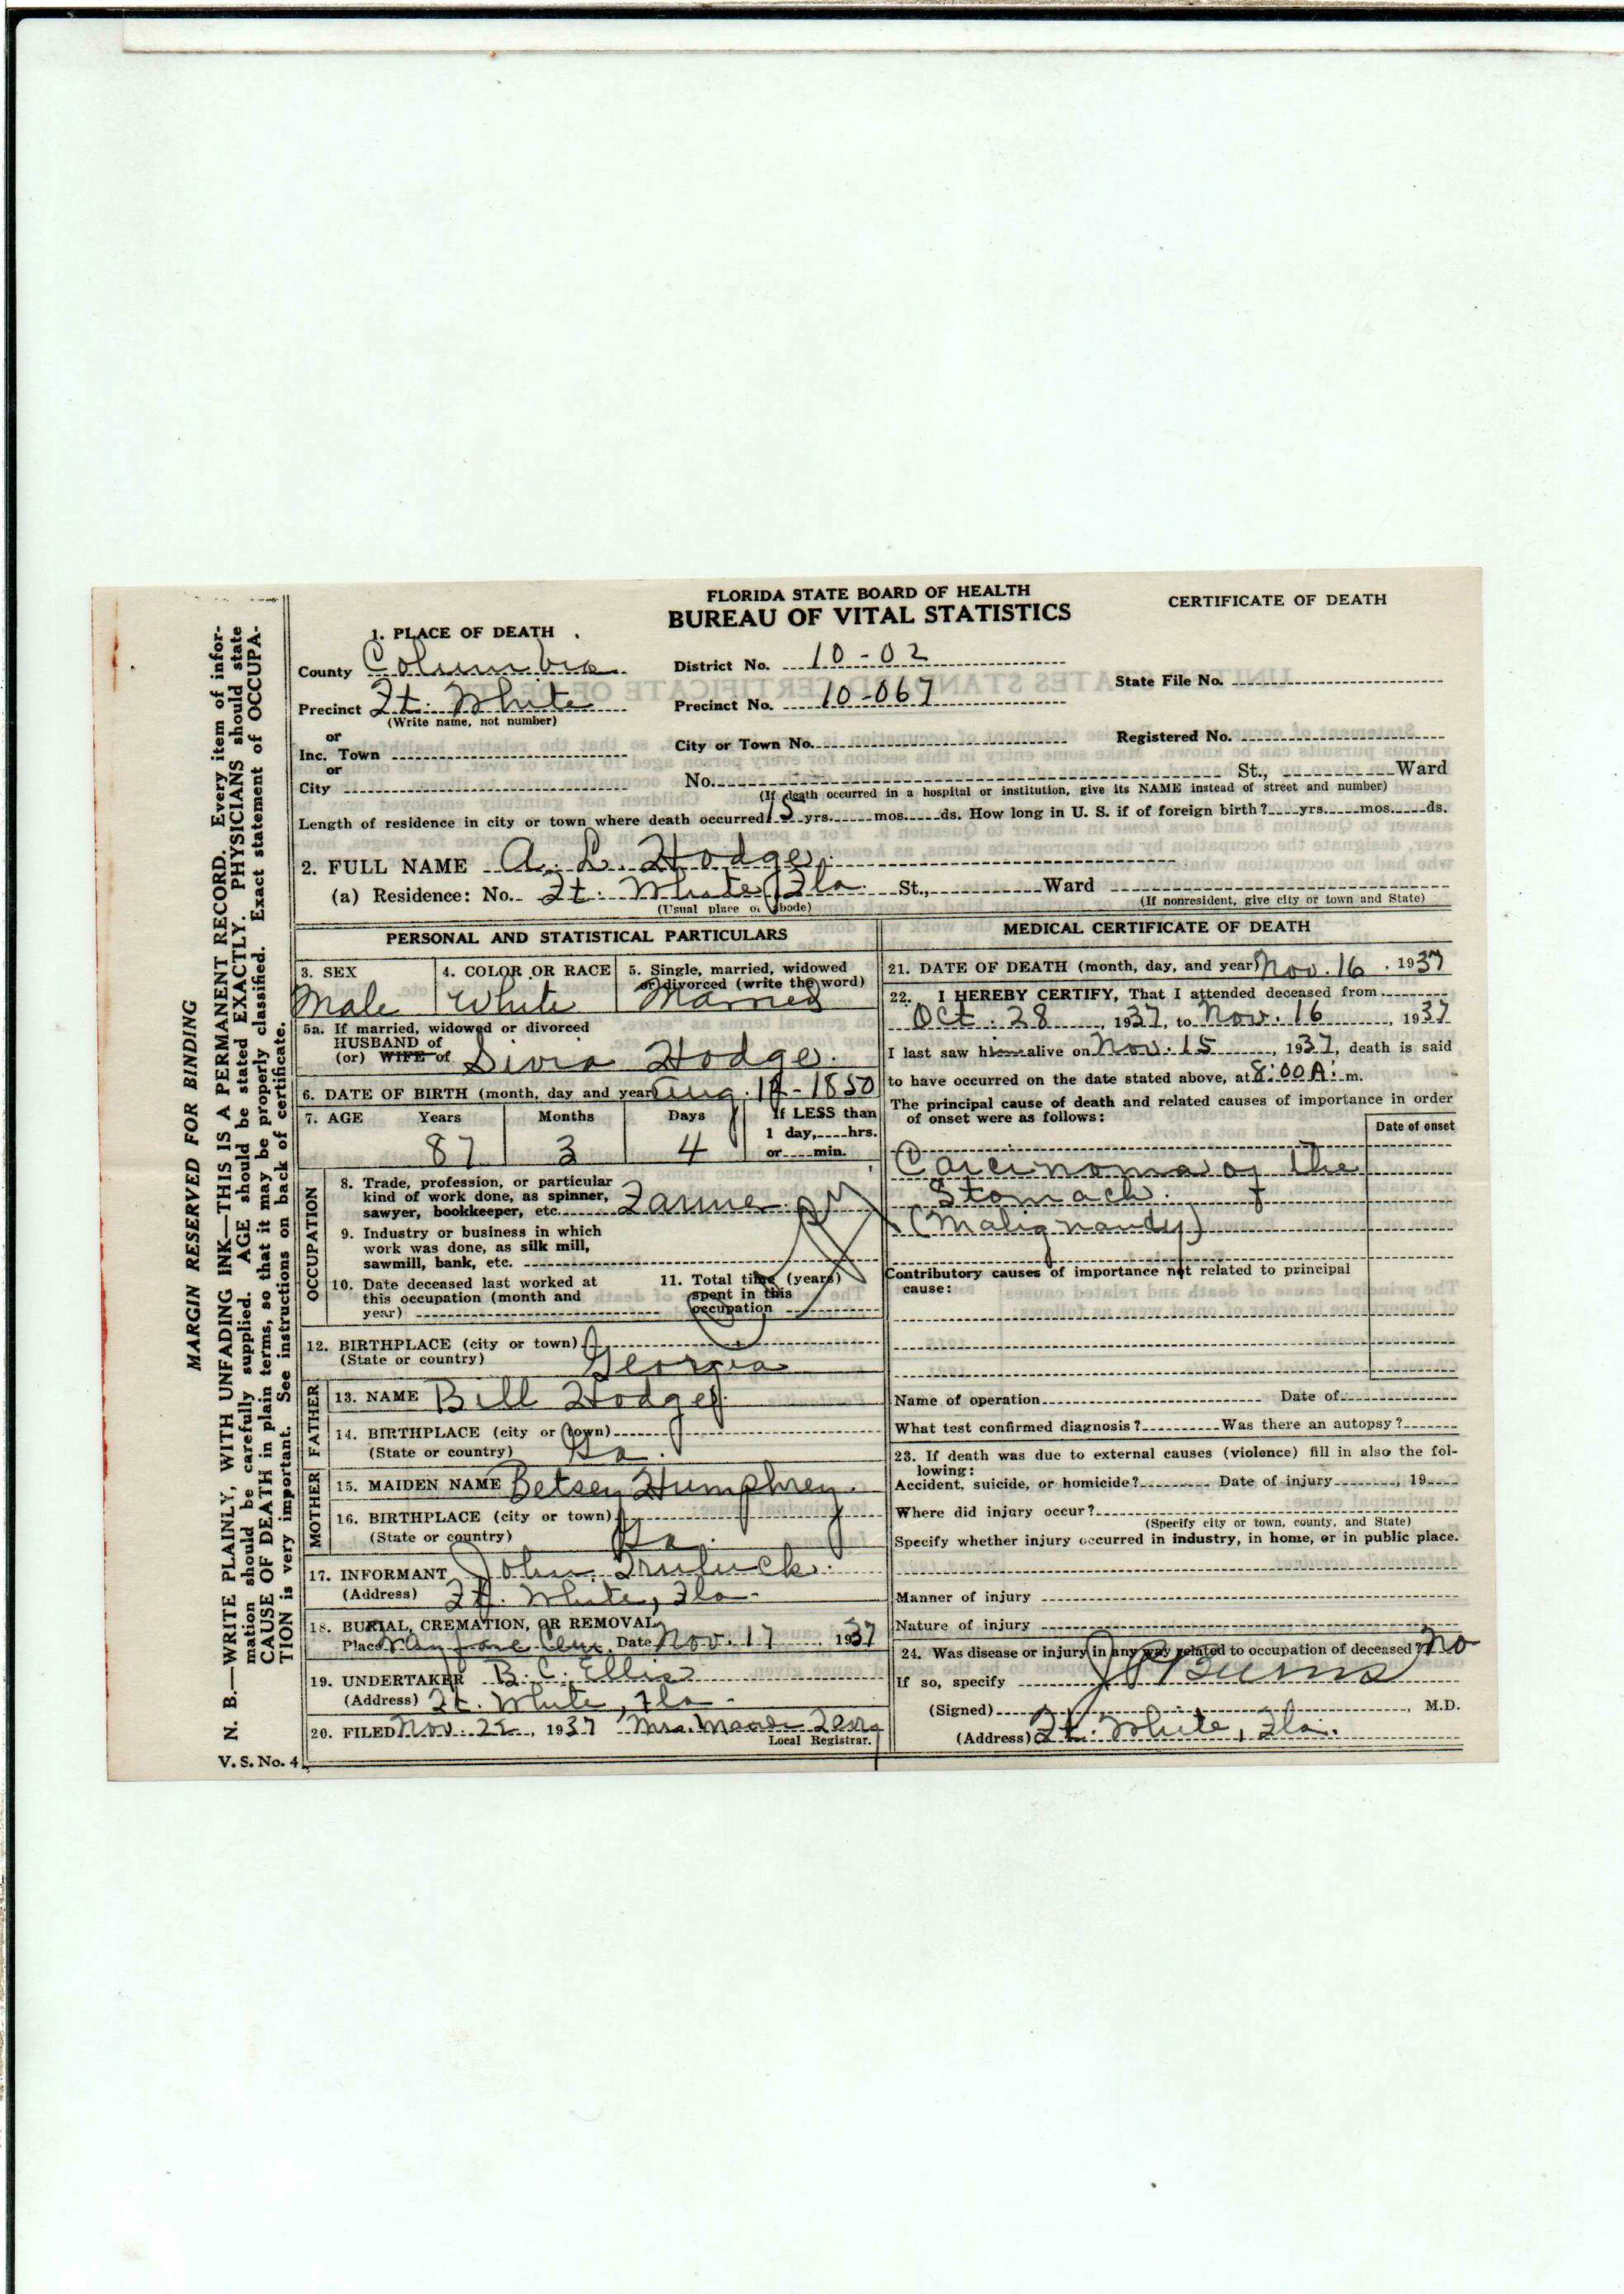 FLORIDA STATE BOARD OF HEALTH
BUREAU OF VITAL STATISTICS
CERTIFICATE OF DEATH
1. PLACE OF DEATH
County Columbia
District No. 10-02
State File No.
Precinct Ft. White
(Write name, not number)
Precinct No. 10-067
or
Inc. Town
City or Town No.
Registered No.
or
City
No. St., Ward
(If death occurred in a hospital or institution, give its NAME instead of street and number)
Length of residence in city or town where death occurred 15 yrs. mos. ds. How long in U. S. if of foreign birth? yrs. mos. ds.
2. FULL NAME A. L. Hodge
(a) Residence: No. Ft. White, Fla. St., Ward
(Usual place of abode)
(If nonresident, give city or town and State)
PERSONAL AND STATISTICAL PARTICULARS
3. SEX
Male
4. COLOR OR RACE
White
5. Single, married, widowed
or divorced (write the word)
Married
5a. If married, widowed or divorced
HUSBAND of
(or) WIFE of Sivia Hodge.
6. DATE OF BIRTH (month, day and year) Aug. 12 - 1850
7. AGE Years Months Days If LESS than
1 day, hrs.
or min.
87 3 4
OCCUPATION
8. Trade, profession, or particular
kind of work done, as spinner,
sawyer, bookkeeper, etc. Farmer
9. Industry or business in which
work was done, as silk mill,
sawmill, bank, etc.
10. Date deceased last worked at
this occupation (month and
year)
11. Total time (years)
spent in this
occupation
12. BIRTHPLACE (city or town)
(State or country) Georgia
FATHER
13. NAME Bill Hodge
14. BIRTHPLACE (city or town)
(State or country) Ga.
MOTHER
15. MAIDEN NAME Betsey Humphrey
16. BIRTHPLACE (city or town)
(State or country) Ga.
17. INFORMANT John Truluck
(Address) Ft. White, Fla.
18. BURIAL, CREMATION, OR REMOVAL
Place Cem. Date Nov. 17, 1937
19. UNDERTAKER B. C. Ellis
(Address) Ft. White, Fla.
20. FILED Nov. 22, 1937 Mrs.
Local Registrar.
MEDICAL CERTIFICATE OF DEATH
21. DATE OF DEATH (month, day, and year) Nov. 16, 1937
22. I HEREBY CERTIFY, That I attended deceased from
Oct. 28, 1937, to Nov. 16, 1937
I last saw him alive on Nov. 15, 1937, death is said
to have occurred on the date stated above, at 8:00 A. m.
The principal cause of death and related causes of importance in order
of onset were as follows:
Date of onset
Carcinoma of the
Stomach.
(Malignancy)
Contributory causes of importance not related to principal
cause:
Name of operation Date of
What test confirmed diagnosis? Was there an autopsy?
23. If death was due to external causes (violence) fill in also the fol-
lowing:
Accident, suicide, or homicide? Date of injury , 19
Where did injury occur?
(Specify city or town, county, and State)
Specify whether injury occurred in industry, in home, or in public place.
Manner of injury
Nature of injury
24. Was disease or injury in any way related to occupation of deceased? No
If so, specify
(Signed) Burns, M.D.
(Address) Ft. White, Fla.
MARGIN RESERVED FOR BINDING
N. B.—WRITE PLAINLY, WITH UNFADING INK—THIS IS A PERMANENT RECORD. Every item of infor-
mation should be carefully supplied. AGE should be stated EXACTLY. PHYSICIANS should state
CAUSE OF DEATH in plain terms, so that it may be properly classified. Exact statement of OCCUPA-
TION is very important. See instructions on back of certificate.
V. S. No. 4